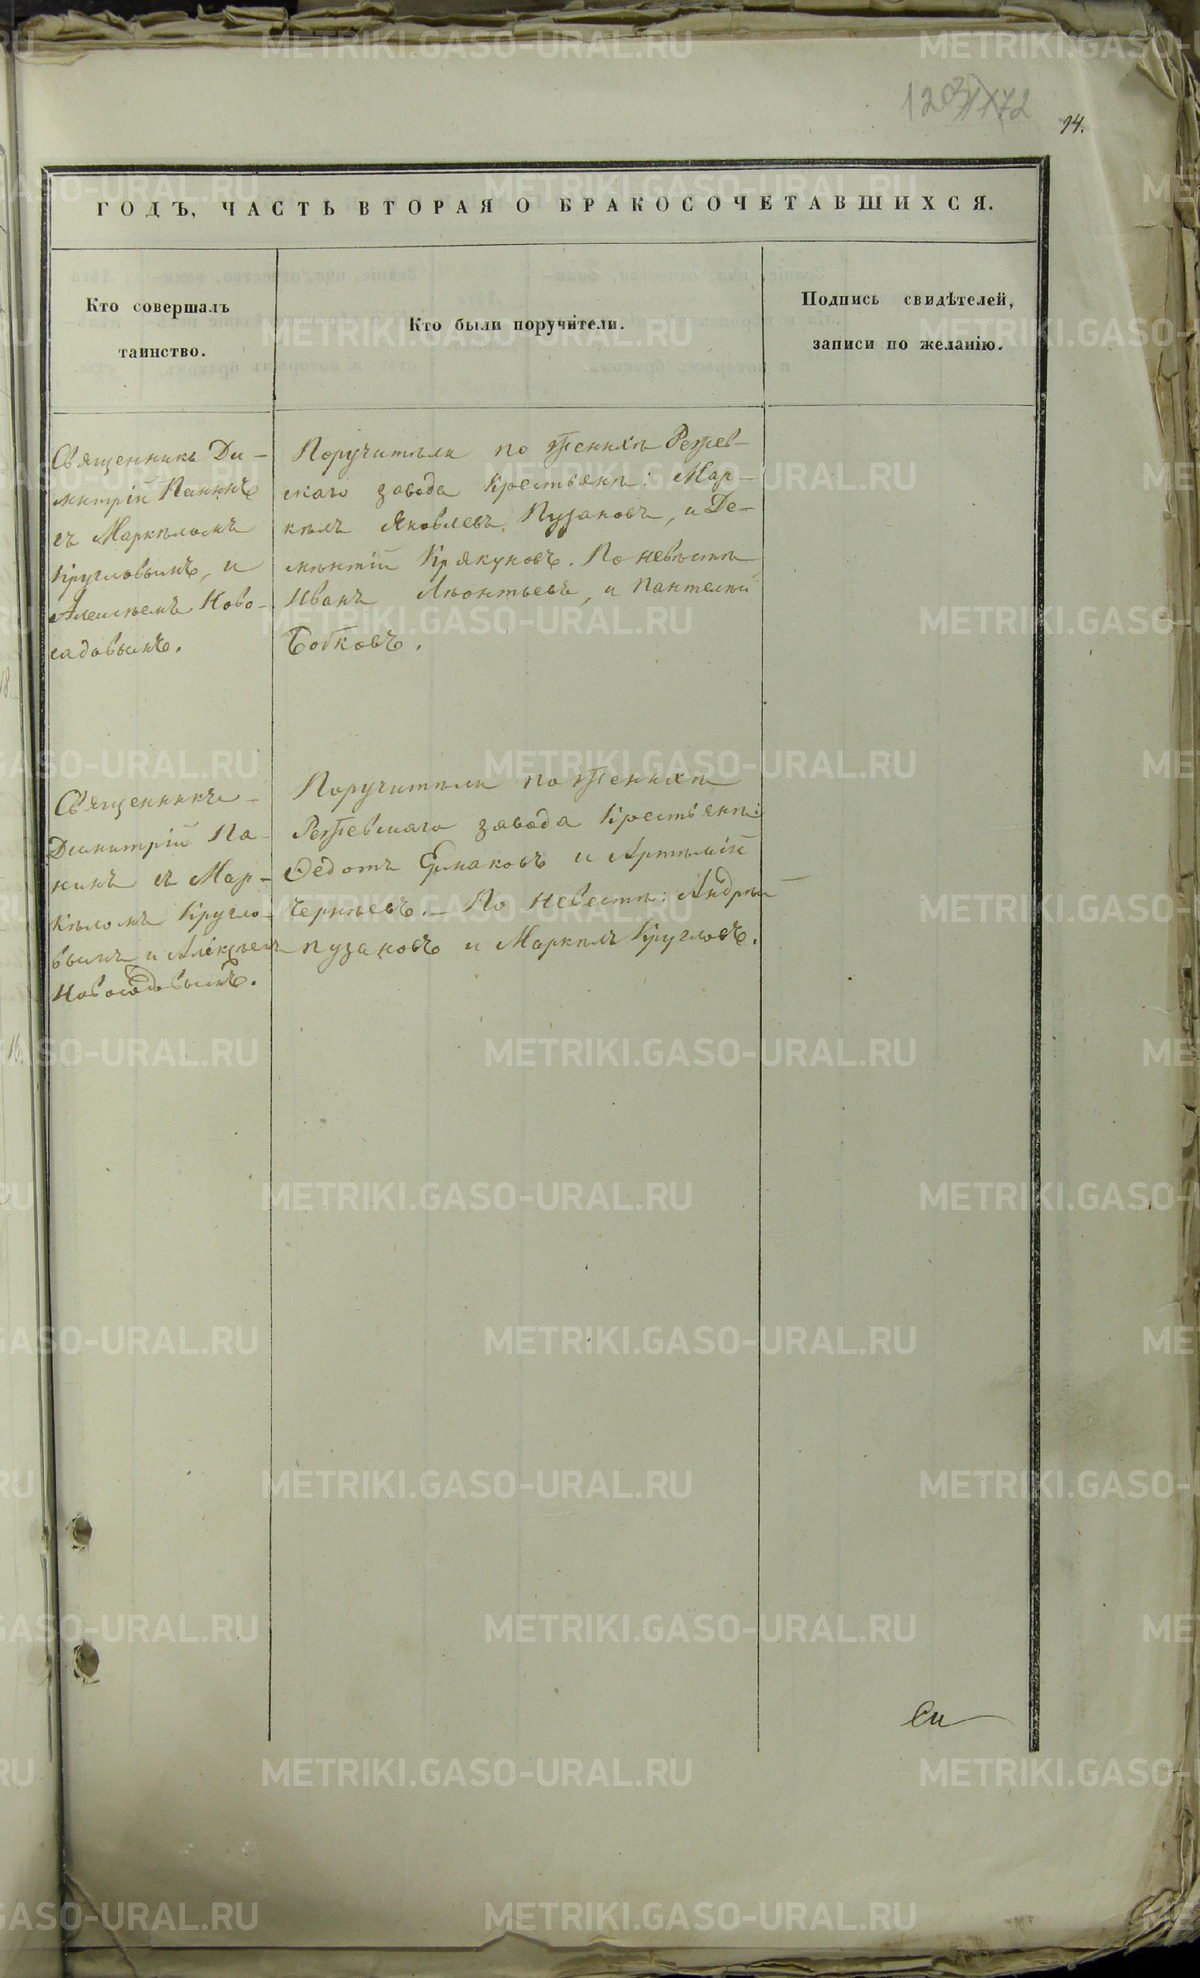 94.
ГОДЪ, ЧАСТЬ ВТОРАЯ О БРАКОСОЧЕТАВШИХСЯ.
Кто совершалъ
таинство.
Кто были поручители.
Подпись свидѣтелей,
записи по желанію.
Священникъ Ди-
митрій Панинъ
съ Маркеломъ
Кругловымъ, и
Алексѣемъ Ново-
садовымъ.
Поручители по женихѣ Режев-
скаго завода крестьяне: Мар-
келъ Яковлевъ Пузановъ, и Де-
ментій Крякуновъ. По невѣстѣ
Иванъ Леонтьевъ, и Пантелей
Бобковъ.
Священникъ
Димитрій Па-
нинъ съ Мар-
келомъ Кругло-
вымъ и Алексѣемъ
Новосадовымъ.
Поручители по женихѣ
Режевскаго завода крестьяне:
Ѳедотъ Ермаковъ и Артемій
Черняевъ. — По невестѣ: Андрей
Пузановъ и Маркелъ Кругловъ.
METRIKI.GASO-URAL.RU